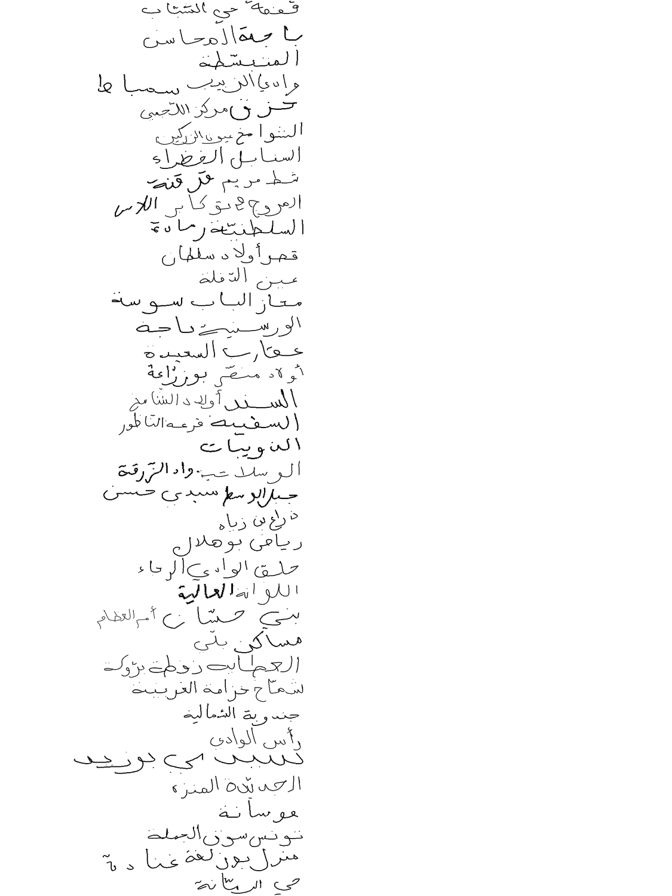 قفصة حي الشباب
باجة المحاسن
المنبسطة
وادي الزيت سمباط
حزق مركز اللجمي
الشوامخ عيون الزركين
السنابل الخضراء
شط مريم قرقنة
المروج بوكابر اللاس
السلطنية رمادة
قصر أولاد سلطان
عين الدفلة
معاز الباب سوسة
الورسنية باجة
عقارب السعيدة
أولاد منصر بوزراعة
السند أولاد الشامخ
السفينة قرعة الناظور
الذويبات
الوسلاتية واد الزرقة
جبل الوسط سيدي حسن
ذراع بن زياد
رياض بوهلال
حلق الوادي الرخاء
اللواتة العالية
بني حسان أم العظام
مساكن بلي
الحطابة زوطة بروكة
شماخ خزامة الغربية
جندوبة الشمالية
رأس الوادي
سيدي بوزيد
الجديدة المنزه
عوسانة
تونس سوق الجملة
منزل بوزلفة عنادة
حي الرمانة